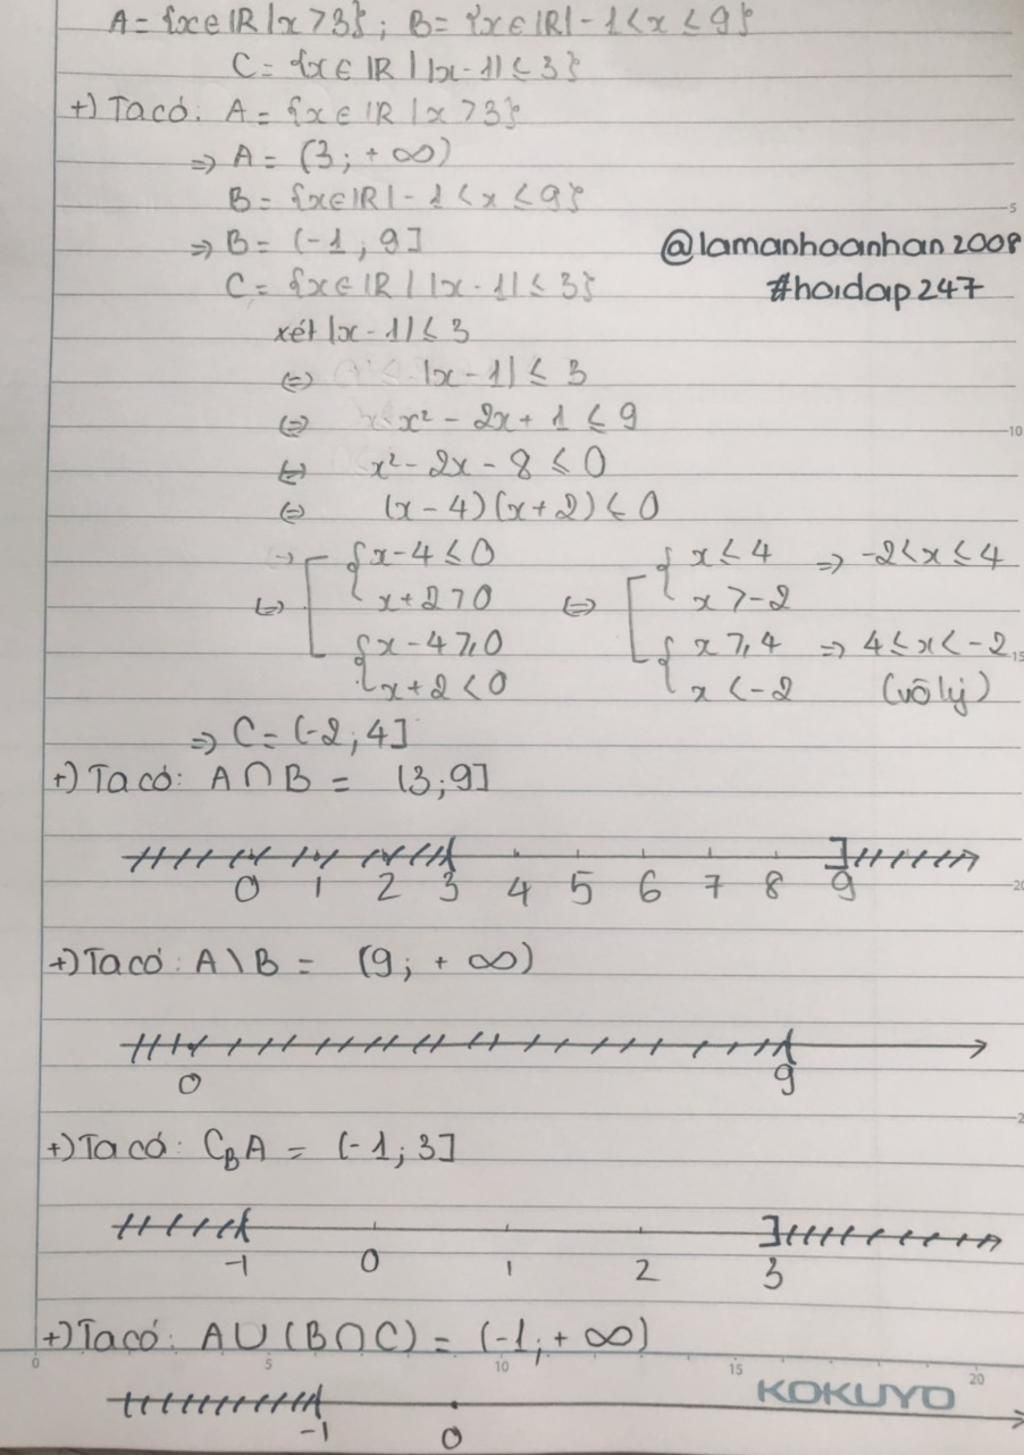 A = {x∈ℝ | x > 3}; B = {x∈ℝ | -1 < x ≤ 9}
C = {x∈ℝ | |x - 1| ≤ 3}
+) Ta có: A = {x∈ℝ | x > 3}
⇒ A = (3; +∞)
B = {x∈ℝ | -1 < x ≤ 9}
⇒ B = (-1; 9]
@lamanhoanhan2008
C = {x∈ℝ | |x - 1| ≤ 3}
#hoidap247
xét |x - 1| ≤ 3
⇔ |x - 1| ≤ 3
⇔ x² - 2x + 1 ≤ 9
⇔ x² - 2x - 8 ≤ 0
⇔ (x - 4)(x + 2) ≤ 0
⇔ [ { x - 4 ≤ 0 ⇔ [ { x ≤ 4 ⇒ -2 < x ≤ 4
x + 2 > 0 x > -2
{ x - 4 ≥ 0 { x ≥ 4 ⇒ 4 ≤ x < -2
x + 2 < 0 x < -2 (vô lý)
⇒ C = (-2; 4]
+) Ta có: A ∩ B = (3; 9]
0 1 2 3 4 5 6 7 8 9
+) Ta có: A \ B = (9; +∞)
0 9
+) Ta có: C_B A = (-1; 3]
-1 0 1 2 3
+) Ta có: A ∪ (B ∩ C) = (-1; +∞)
0 5 10 15 20
KOKUYO
-1 0